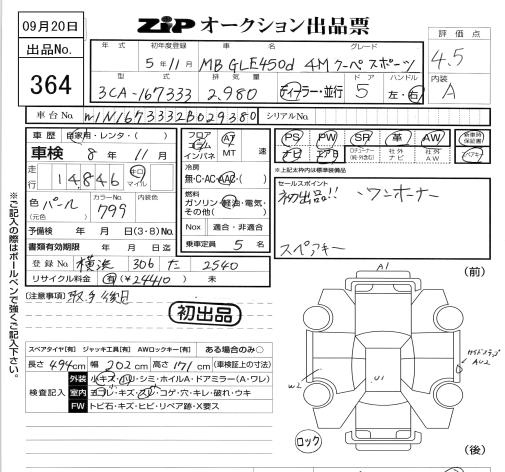 09月20日
ZIP オークション出品票
出品No.
364
評価点
4.5
内装
A
年式 初年度登録 車名 グレード
5年11月 MB GLE450d 4M クーペ スポーツ
型式 排気量 ドア ハンドル
3CA-167333 2,980 ディーラー・並行 5 左・右
車台No. W1N1673332B029380 シリアルNo.
車歴 自家用・レンタ・( )
車検 8年 11月
走行 14,846 キロ マイル
色(元色) パール カラーNo. 799 内装色
予備検 年 月 日(3・8)No.
書類有効期限 年 月 日迄
登録No. 横浜 306 た 2540
リサイクル料金 有(¥24410) 未
フロア コラム インパネ AT MT 速
冷房
無・C・AC・AAC・( )
燃料
ガソリン・軽油・電気・その他( )
Nox 適合・非適合
乗車定員 5名
PS PW SR 革 AW 新車時保証書
ナビ エアB CDチューナー(純・社外含む) 社外ナビ 社外AW スペアキー
※上記太枠内は標準装備品
セールスポイント
初出品!! ・ワンオーナー
スペアキー
[注意事項] 取手後日
初出品
スペアタイヤ【有】 ジャッキ工具【有】 AWロックキー【有】 ある場合のみ〇
長さ 494cm 幅 202cm 高さ 171cm (車検証上の寸法)
検査記入
外装 小キズ・凹・シミ・ホイルA・ドアミラー(A・ワレ)
室内 ヨゴレ・キズ・スレ・コゲ・穴・キレ・破れ・ウキ
FW トビ石・キズ・ヒビ・リペア跡・X要ス
※ご記入の際はボールペンで強くご記入下さい。
(前)
A1
W2
U1
ロック
(後)